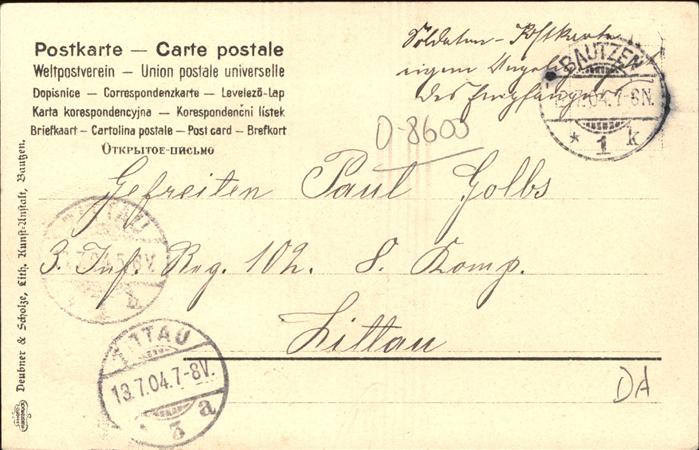 Postkarte — Carte postale
Weltpostverein — Union postale universelle
Dopisnice — Correspondenzkarte — Levelező-Lap
Karta korespondencyjna — Korespondenční lístek
Briefkaart — Cartolina postale — Post card — Brefkort
Открытое-письмо
Soldaten-Postkarte
eigene Angel
des Empfängers
BAUTZEN
7.04.7-8N.
* 1 k
D-8600
Gefreiten Paul Golbs
3. Inf. Reg. 102. 8. Komp.
Zittau
ZITTAU
7.04.5-6V.
b
ZITTAU
13.7.04.7-8V.
3 a
DA
Deubner & Scholze, Lith. Kunst-Anstalt, Bautzen.